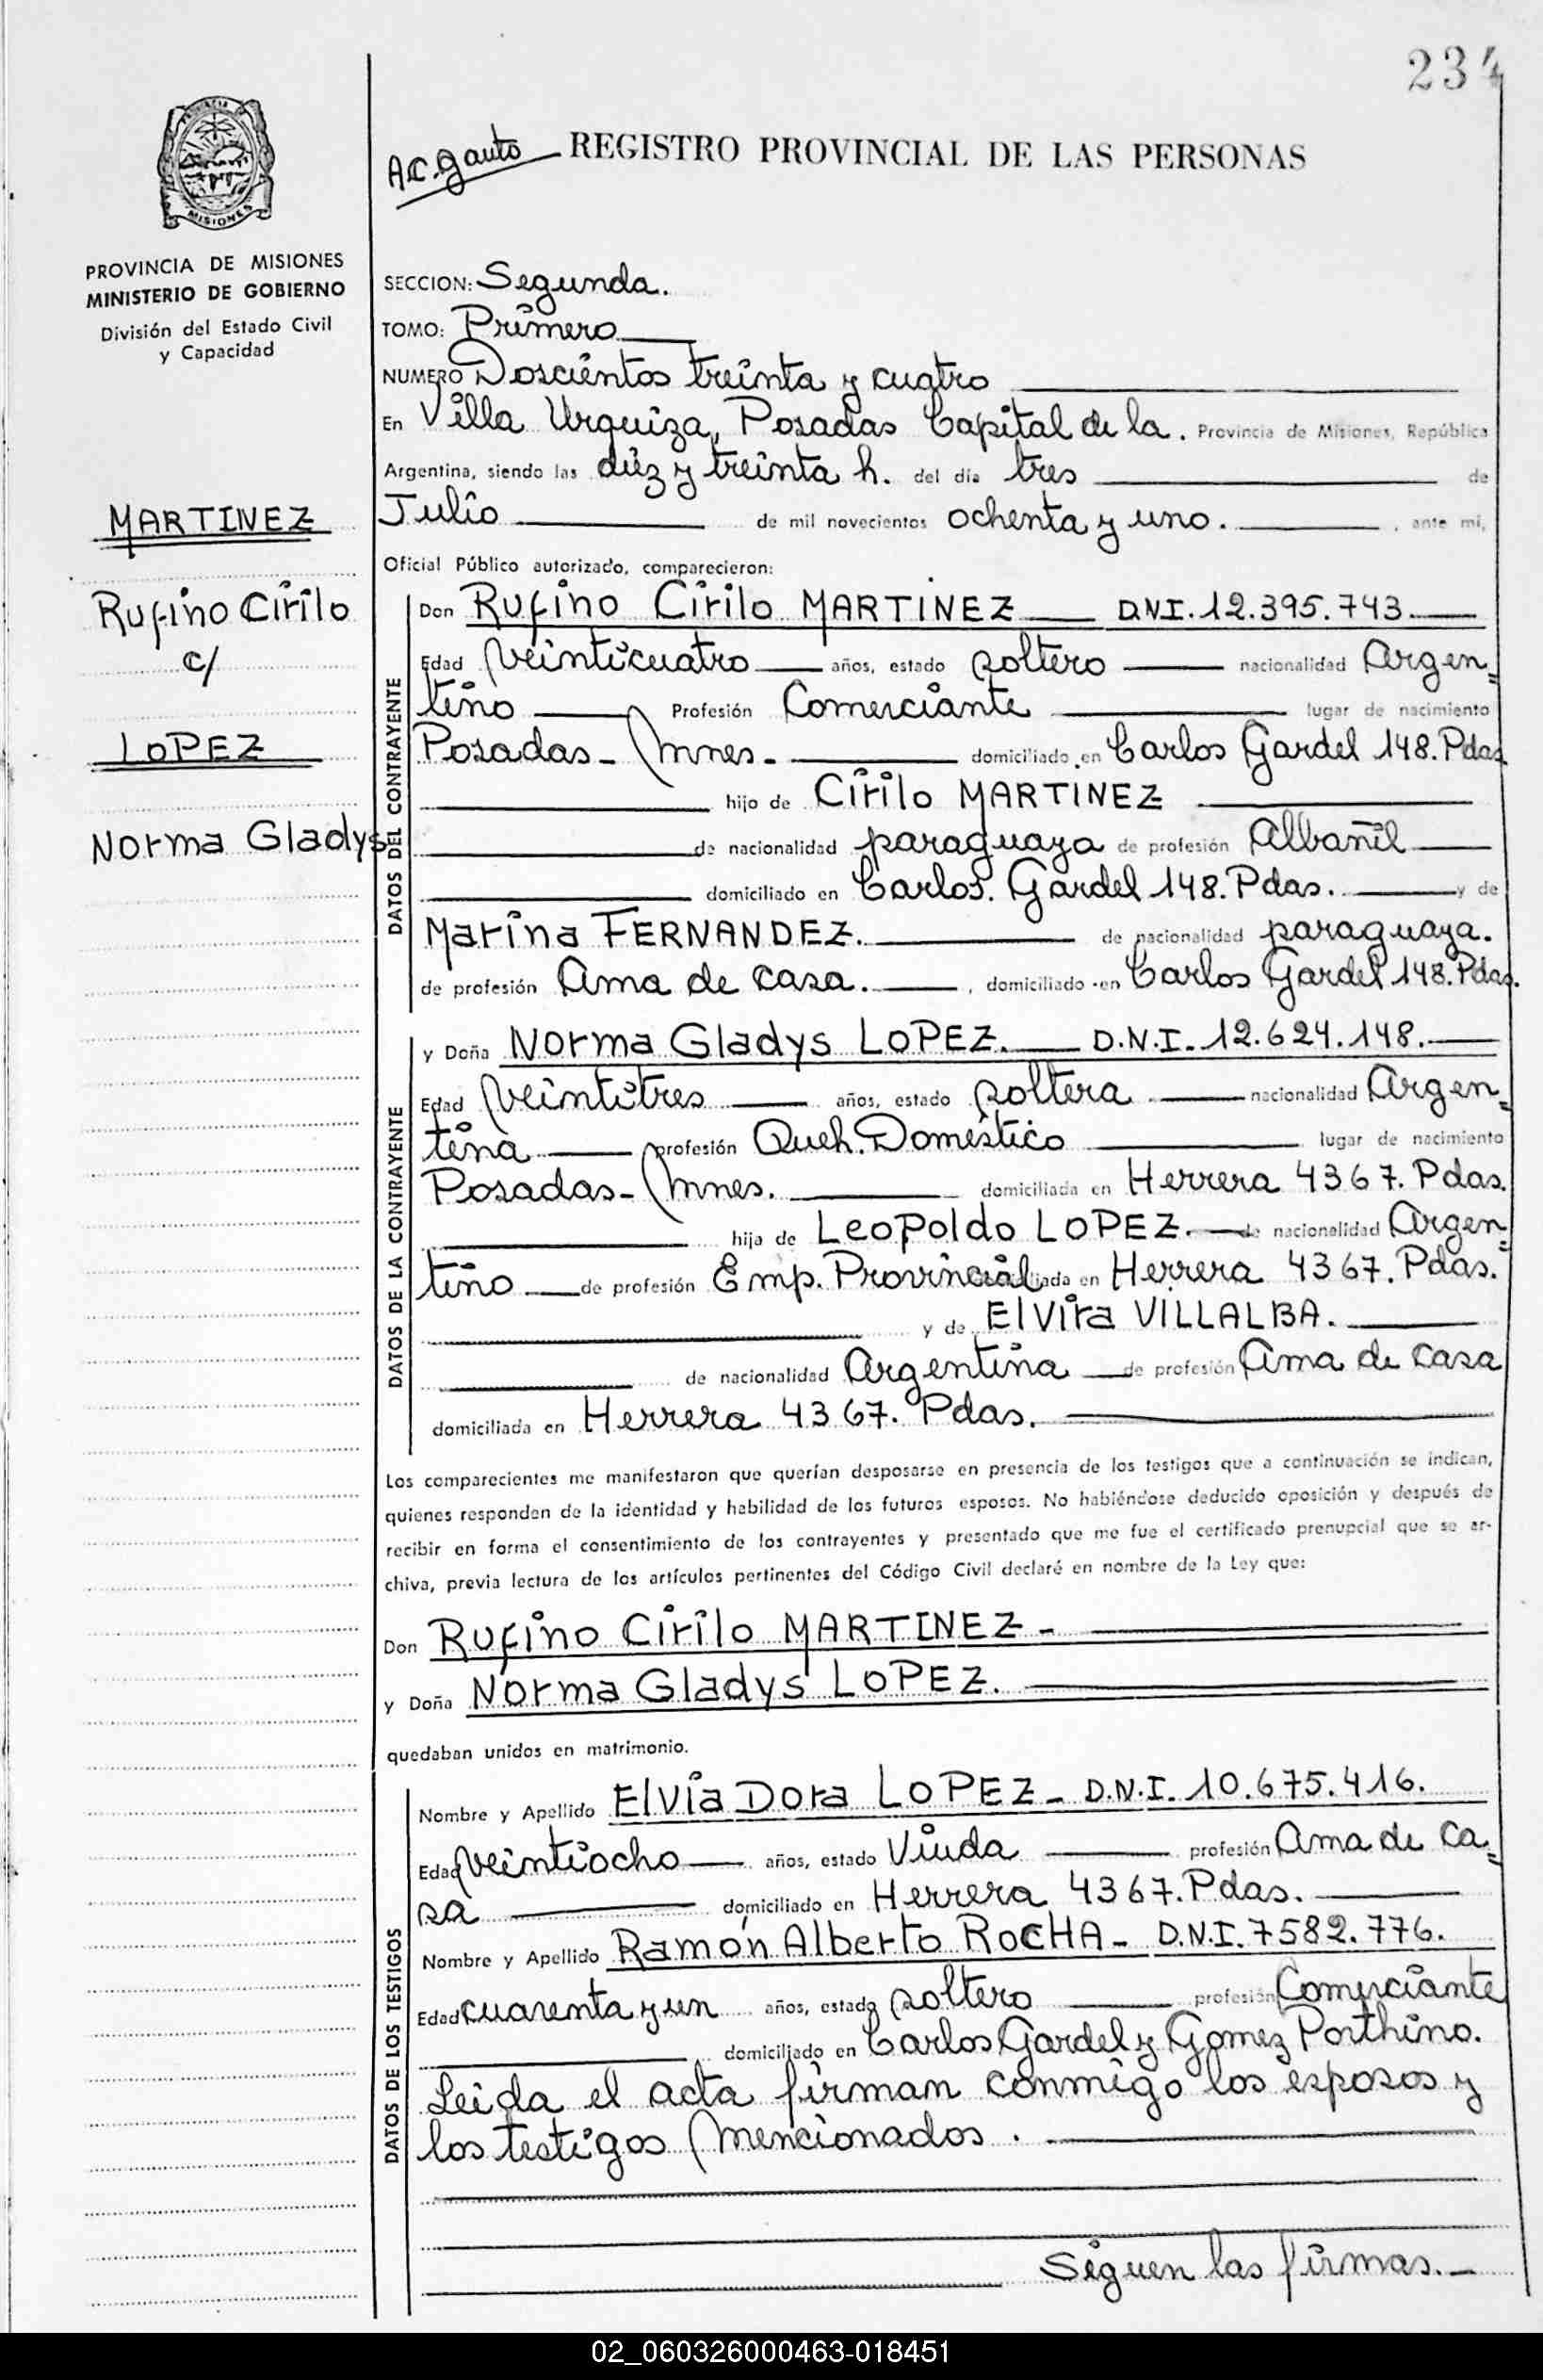 234
PROVINCIA
MISIONES
PROVINCIA DE MISIONES
MINISTERIO DE GOBIERNO
División del Estado Civil
y Capacidad
MARTINEZ
Rufino Cirilo
c/
LOPEZ
Norma Gladys
A.C. Gauto REGISTRO PROVINCIAL DE LAS PERSONAS
SECCION: Segunda.
TOMO: Primero
NUMERO Doscientos treinta y cuatro
En Villa Urquiza, Posadas Capital de la. Provincia de Misiones, República
Argentina, siendo las diez y treinta h. del día tres de
Julio de mil novecientos ochenta y uno. , ante mí,
Oficial Público autorizado, comparecieron:
DATOS DEL CONTRAYENTE
Don Rufino Cirilo MARTINEZ D.N.I. 12.395.743.
Edad veinticuatro años, estado soltero nacionalidad Argen=
tino Profesión Comerciante lugar de nacimiento
Posadas - Mnes. domiciliado en Carlos Gardel 148. Pdas
hijo de Cirilo MARTINEZ
de nacionalidad paraguaya de profesión Albañil
domiciliado en Carlos. Gardel 148. Pdas. y de
Marina FERNANDEZ. de nacionalidad paraguaya.
de profesión Ama de casa. , domiciliado en Carlos Gardel 148. Pdas.
DATOS DE LA CONTRAYENTE
y Doña Norma Gladys LOPEZ. D.N.I. 12.624.148.
Edad veintitres años, estado soltera nacionalidad Argen=
tina profesión Queh. Doméstico lugar de nacimiento
Posadas - Mnes. domiciliada en Herrera 4367. Pdas.
hija de Leopoldo LOPEZ. de nacionalidad Argen=
tino de profesión Emp. Provincial domiciliada en Herrera 4367. Pdas.
y de Elvira VILLALBA.
de nacionalidad Argentina de profesión Ama de casa
domiciliada en Herrera 4367. Pdas.
Los comparecientes me manifestaron que querían desposarse en presencia de los testigos que a continuación se indican,
quienes responden de la identidad y habilidad de los futuros esposos. No habiéndose deducido oposición y después de
recibir en forma el consentimiento de los contrayentes y presentado que me fue el certificado prenupcial que se ar-
chiva, previa lectura de los artículos pertinentes del Código Civil declaré en nombre de la Ley que:
Don Rufino Cirilo MARTINEZ -
y Doña Norma Gladys LOPEZ.
quedaban unidos en matrimonio.
DATOS DE LOS TESTIGOS
Nombre y Apellido Elvia Dora LOPEZ - D.N.I. 10.675.416.
Edad veintiocho años, estado Viuda profesión Ama de ca=
sa domiciliado en Herrera 4367. Pdas.
Nombre y Apellido Ramón Alberto ROCHA - D.N.I. 7582.776.
Edad cuarenta y un años, estado soltero profesión Comerciante
domiciliado en Carlos Gardel y Gomez Porthino.
Leida el acta firman conmigo los esposos y
los testigos mencionados.
Siguen las firmas. -
02_060326000463-018451